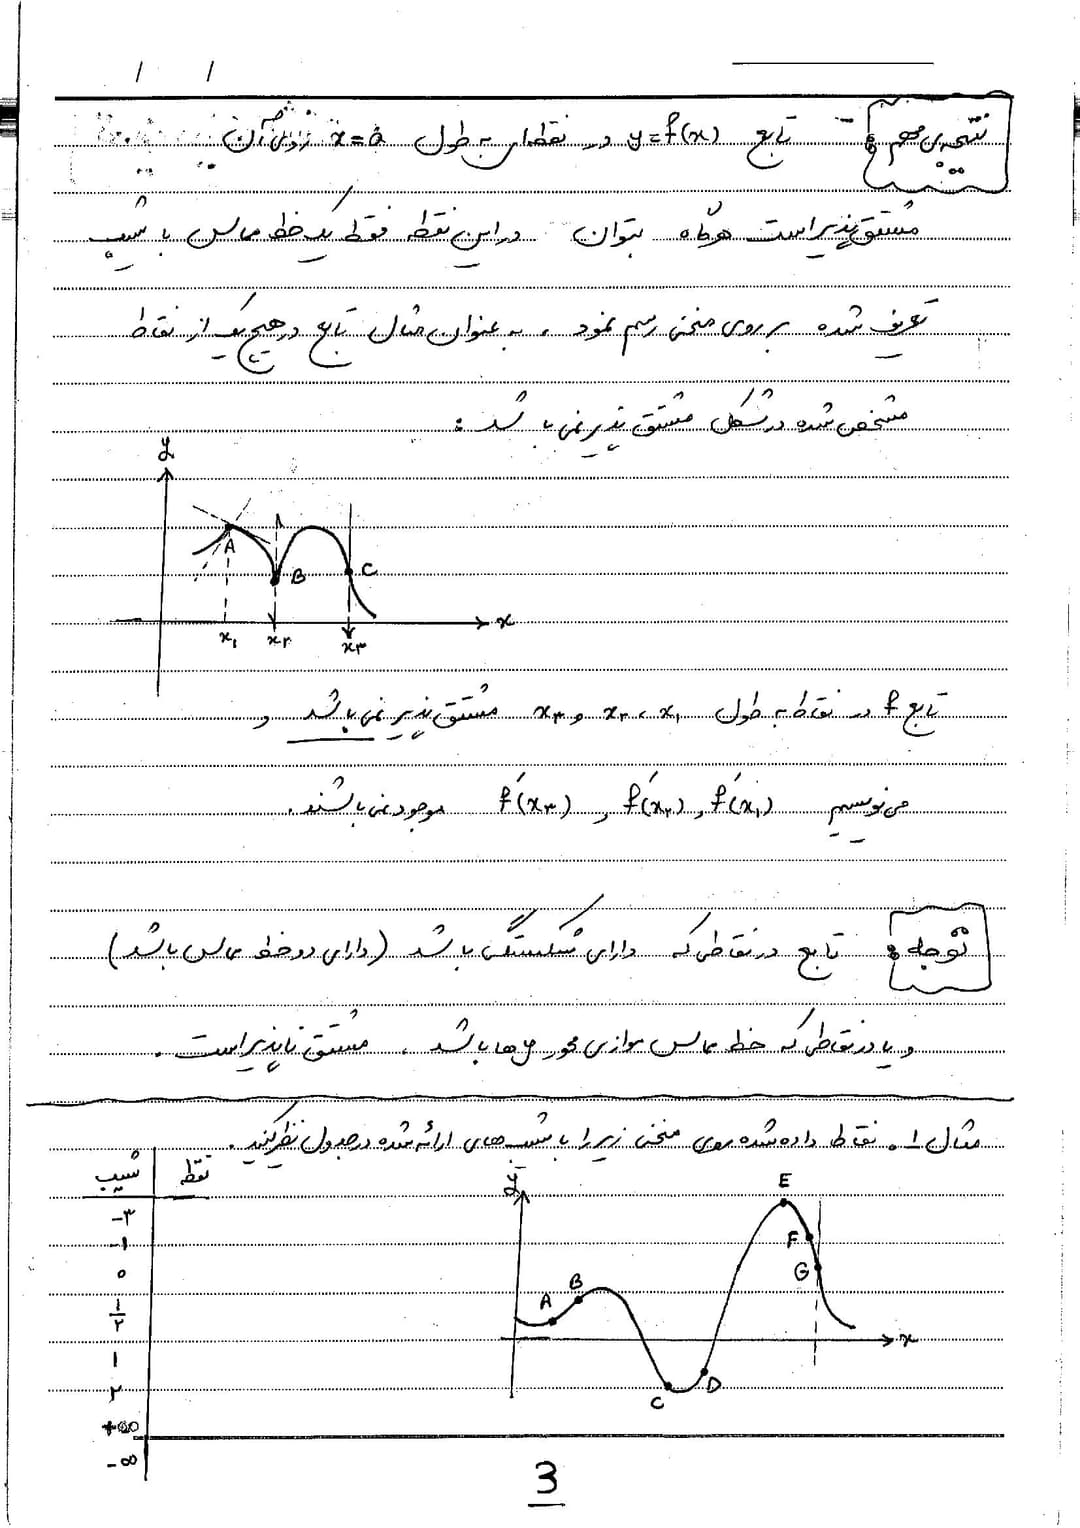 / /
نتیجه‌ی مهم : تابع y=f(x) در نقطه‌ای به طول x=a روی آن
مشتق‌پذیر است هرگاه بتوان در این نقطه فقط یک خط مماس با شیب
تعریف شده بر روی منحنی رسم نمود ، به عنوان مثال تابع در هیچ یک از نقاط
مشخص شده در شکل مشتق پذیر نمی باشد :
y
A
B
C
x
x۱ x۲ x۳
تابع f در نقاط به طول x۱ ، x۲ و x۳ مشتق پذیر نمی باشد و
می نویسیم f'(x۱) و f'(x۲) و f'(x۳) موجود نمی باشند .
توجه : تابع در نقاطی که دارای شکستگی باشد (دارای دو خط مماس باشد)
و یا در نقاطی که خط مماس موازی محور yها باشد ، مشتق ناپذیر است .
مثال ۱ . نقاط داده شده روی منحنی زیر را با شیب های ارائه شده در جدول نظیر کنید .
نقطه شیب
-۳
-۱
۰
۱/۲
۱
۲
+∞
-∞
y
E
F
G
B
A
x
D
C
3